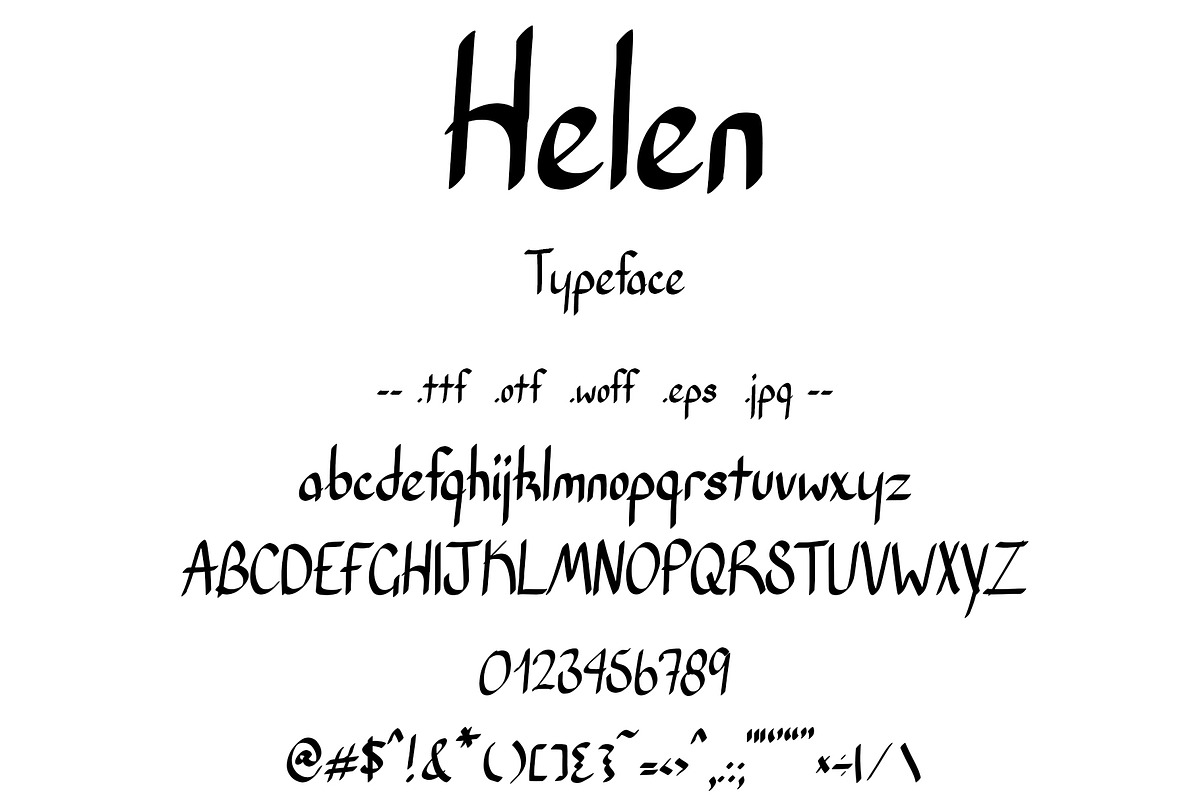 Helen
Typeface
-- .ttf .otf .woff .eps .jpg --
abcdefghijklmnopqrstuvwxyz
ABCDEFGHIJKLMNOPQRSTUVWXYZ
0123456789
@#$^!&*()[]{}~=<>^,.:;""''""×÷|/\